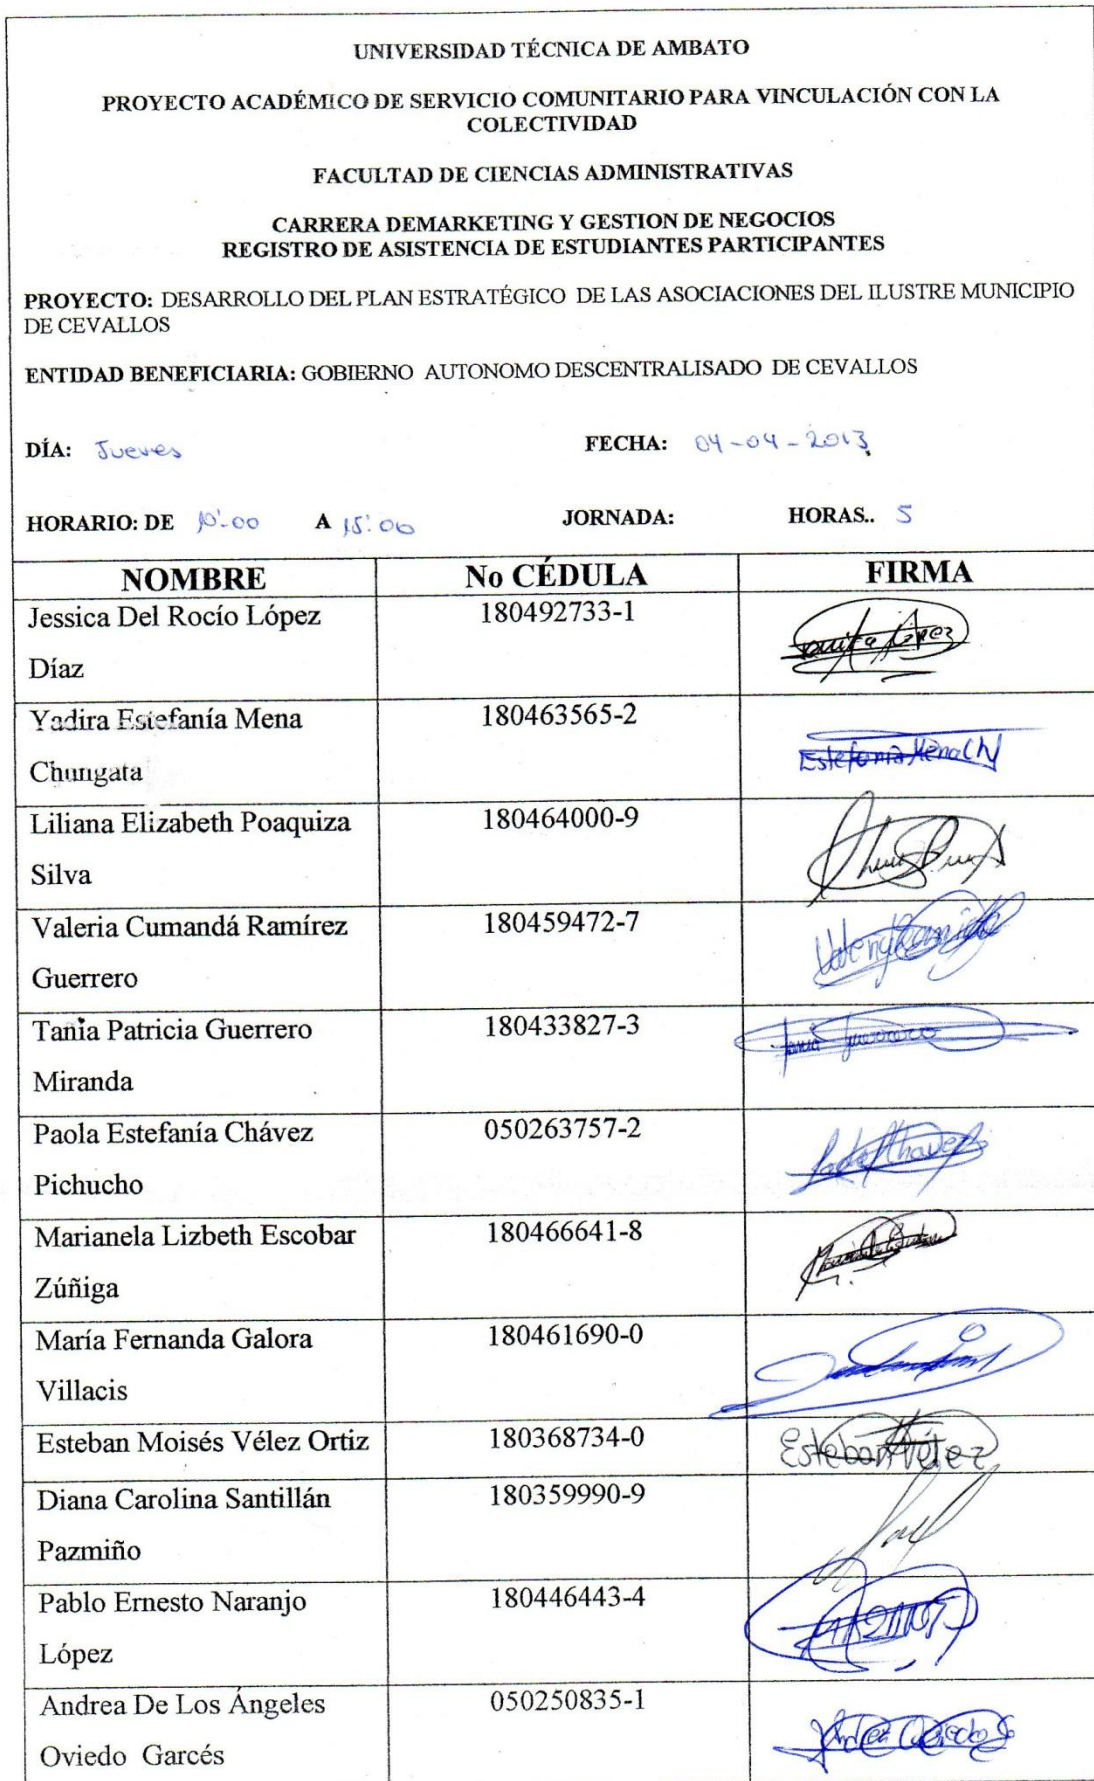 UNIVERSIDAD TÉCNICA DE AMBATO
PROYECTO ACADÉMICO DE SERVICIO COMUNITARIO PARA VINCULACIÓN CON LA
COLECTIVIDAD
FACULTAD DE CIENCIAS ADMINISTRATIVAS
CARRERA DEMARKETING Y GESTION DE NEGOCIOS
REGISTRO DE ASISTENCIA DE ESTUDIANTES PARTICIPANTES
PROYECTO: DESARROLLO DEL PLAN ESTRATÉGICO DE LAS ASOCIACIONES DEL ILUSTRE MUNICIPIO
DE CEVALLOS
ENTIDAD BENEFICIARIA: GOBIERNO AUTONOMO DESCENTRALISADO DE CEVALLOS
DÍA: Jueves FECHA: 04-04-2013
HORARIO: DE 10:00 A 15:00 JORNADA: HORAS.. 5
NOMBRE No CÉDULA FIRMA
Jessica Del Rocío López 180492733-1
Díaz
Yadira Estefanía Mena 180463565-2
Chungata Estefanía Mena Ch
Liliana Elizabeth Poaquiza 180464000-9
Silva
Valeria Cumandá Ramírez 180459472-7
Guerrero
Tania Patricia Guerrero 180433827-3 Tania Guerrero
Miranda
Paola Estefanía Chávez 050263757-2
Pichucho
Marianela Lizbeth Escobar 180466641-8
Zúñiga
María Fernanda Galora 180461690-0
Villacis
Esteban Moisés Vélez Ortiz 180368734-0 Esteban Vélez
Diana Carolina Santillán 180359990-9
Pazmiño
Pablo Ernesto Naranjo 180446443-4
López
Andrea De Los Ángeles 050250835-1
Oviedo Garcés